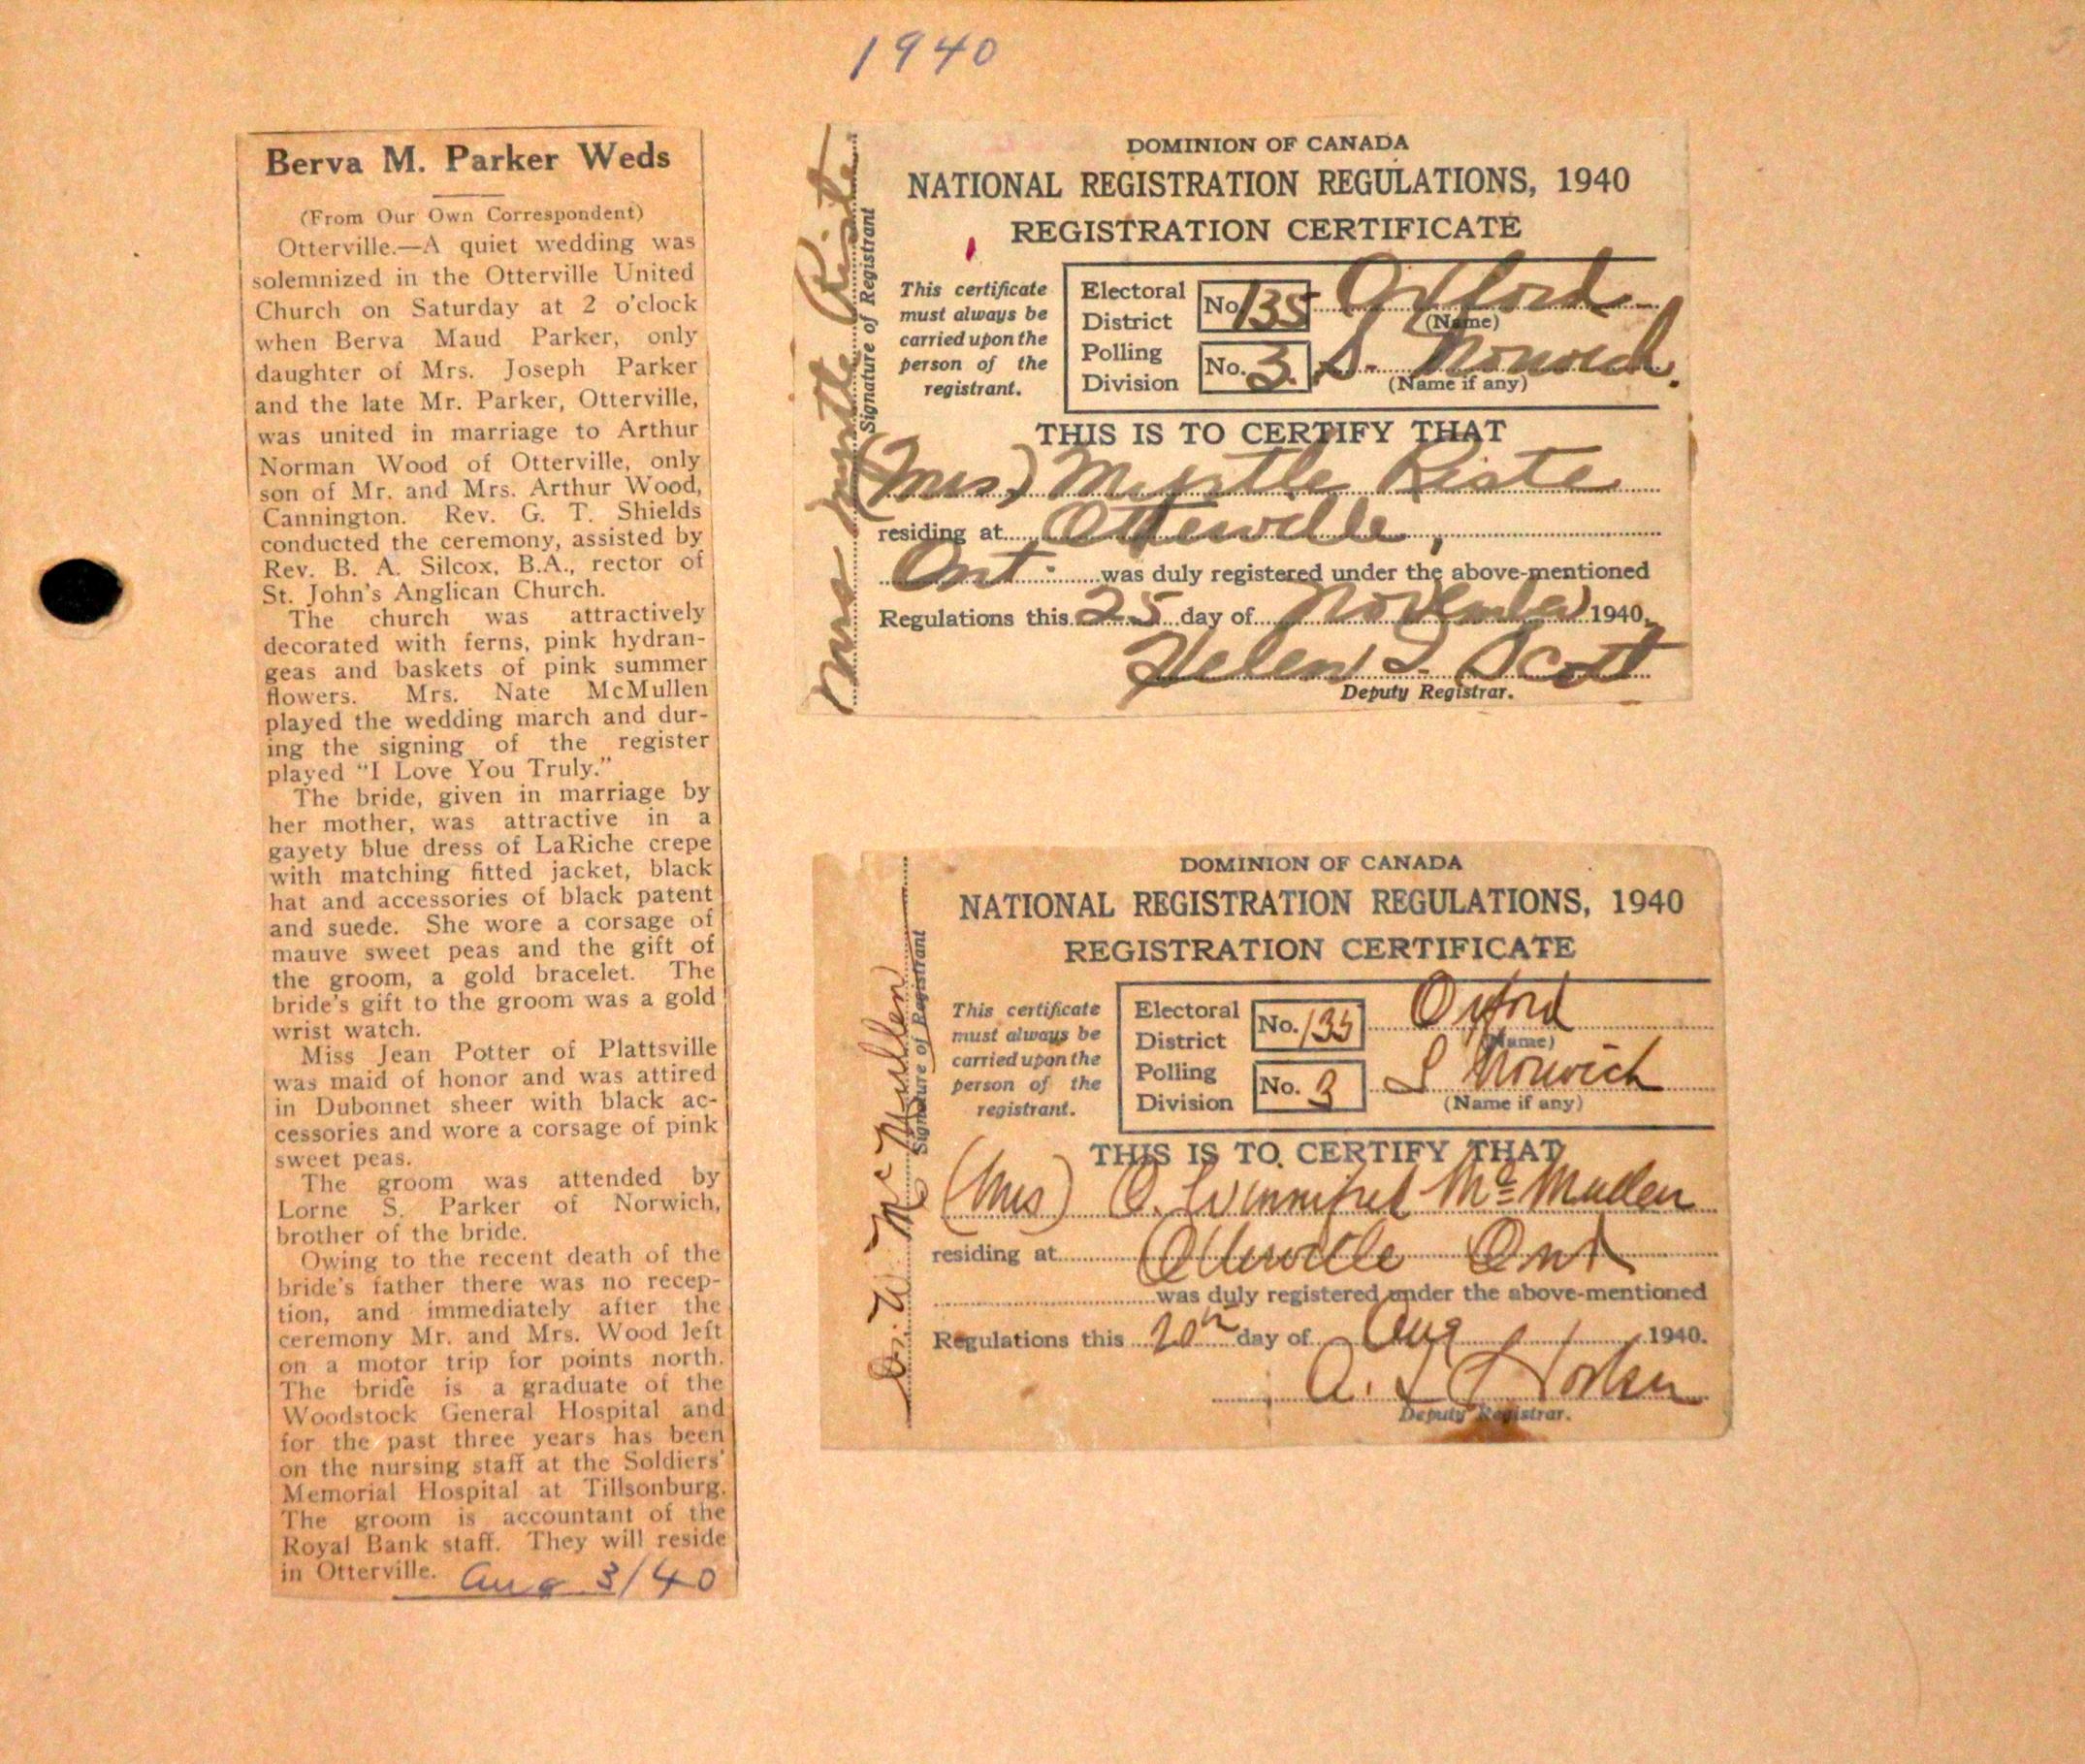 1940
Berva M. Parker Weds
(From Our Own Correspondent)
Otterville.—A quiet wedding was
solemnized in the Otterville United
Church on Saturday at 2 o'clock
when Berva Maud Parker, only
daughter of Mrs. Joseph Parker
and the late Mr. Parker, Otterville,
was united in marriage to Arthur
Norman Wood of Otterville, only
son of Mr. and Mrs. Arthur Wood,
Cannington. Rev. G. T. Shields
conducted the ceremony, assisted by
Rev. B. A. Silcox, B.A., rector of
St. John's Anglican Church.
The church was attractively
decorated with ferns, pink hydran-
geas and baskets of pink summer
flowers. Mrs. Nate McMullen
played the wedding march and dur-
ing the signing of the register
played "I Love You Truly."
The bride, given in marriage by
her mother, was attractive in a
gayety blue dress of LaRiche crepe
with matching fitted jacket, black
hat and accessories of black patent
and suede. She wore a corsage of
mauve sweet peas and the gift of
the groom, a gold bracelet. The
bride's gift to the groom was a gold
wrist watch.
Miss Jean Potter of Plattsville
was maid of honor and was attired
in Dubonnet sheer with black ac-
cessories and wore a corsage of pink
sweet peas.
The groom was attended by
Lorne S. Parker of Norwich,
brother of the bride.
Owing to the recent death of the
bride's father there was no recep-
tion, and immediately after the
ceremony Mr. and Mrs. Wood left
on a motor trip for points north.
The bride is a graduate of the
Woodstock General Hospital and
for the past three years has been
on the nursing staff at the Soldiers'
Memorial Hospital at Tillsonburg.
The groom is accountant of the
Royal Bank staff. They will reside
in Otterville. Aug 3/40
Mrs Myrtle Riste
Signature of Registrant
DOMINION OF CANADA
NATIONAL REGISTRATION REGULATIONS, 1940
REGISTRATION CERTIFICATE
This certificate
must always be
carried upon the
person of the
registrant.
Electoral
District No. 135 Oxford
(Name)
Polling
Division No. 3. S. Norwich.
(Name if any)
THIS IS TO CERTIFY THAT
(Mrs) Myrtle Riste
residing at Otterville,
Ont. was duly registered under the above-mentioned
Regulations this 25 day of November 1940.
Helen I. Scott
Deputy Registrar.
O. W. McMullen
Signature of Registrant
DOMINION OF CANADA
NATIONAL REGISTRATION REGULATIONS, 1940
REGISTRATION CERTIFICATE
This certificate
must always be
carried upon the
person of the
registrant.
Electoral
District No. 135 Oxford
(Name)
Polling
Division No. 3 S Norwich
(Name if any)
THIS IS TO CERTIFY THAT
(Mrs) O. Winnifred McMullen
residing at Otterville Ont
was duly registered under the above-mentioned
Regulations this 20th day of Aug 1940.
A.
Deputy Registrar.